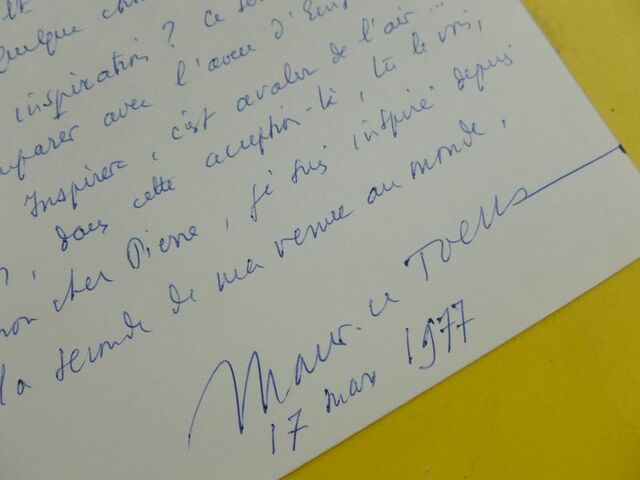 quelque
inspiration ? Ce
avec l'aveu d'
Inspirer, c'est avaler de l'air...
, dans cette acception-là, tu le vois,
mon cher Pierre, je suis inspiré depuis
la seconde de ma venue au monde,
Maurice Toesca
17 mars 1977